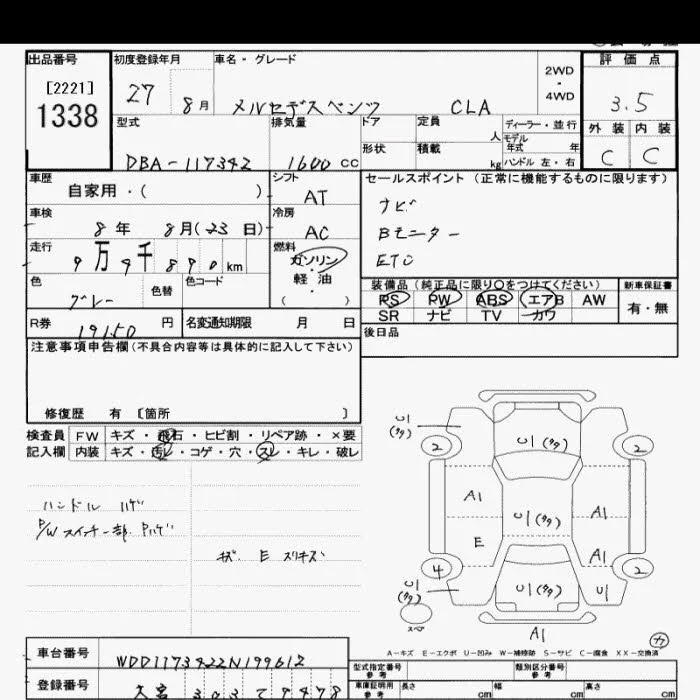 出品番号 初度登録年月 車名・グレード 2WD・4WD 評価点
[2221]
1338
27 8月 メルセデスベンツ CLA 3.5
型式 排気量 ドア 定員 人 ディーラー・並行 外装 内装
モデル年式 年
DBA-117342 1600 CC 形状 積載 kg ハンドル 左・右 C C
車歴 シフト セールスポイント (正常に機能するものに限ります)
自家用・( ) AT ナビ
車検 冷房 Bモニター
8年 8月(23日) AC ETC
走行 9万9千890km 燃料
ガソリン・軽油・( )
色 グレー 色替 色コード
装備品 (純正品に限り〇をつけてください) 新車保証書
PS PW ABS エアB AW 有・無
SR ナビ TV カワ
R券 19150円 名変通知期限 月 日 後日品
注意事項申告欄(不具合内容等は具体的に記入して下さい)
修復歴 有 〔箇所 〕
検査員記入欄
FW キズ・飛石・ヒビ割・リペア跡・×要
内装 キズ・汚レ・コゲ・穴・スレ・キレ・破レ
ハンドル ハゲ
P/Wスイッチ一部 Pハゲ
キズ E スリキズ
U1 (タタ)
2 U1(タタ) 2
A1 A1
U1(タタ)
E A1
4 2
U1 (タタ) U1(タタ) U1
スペア
A1
A-キズ E-エクボ U-凹み W-補修跡 S-サビ C-腐食 XX-交換済
車台番号 WDD1173422N199612
型式指定番号 参考 類別区分番号 参考
登録番号 303 7978
車庫証明用 参考 長さ cm 幅 cm 高さ cm